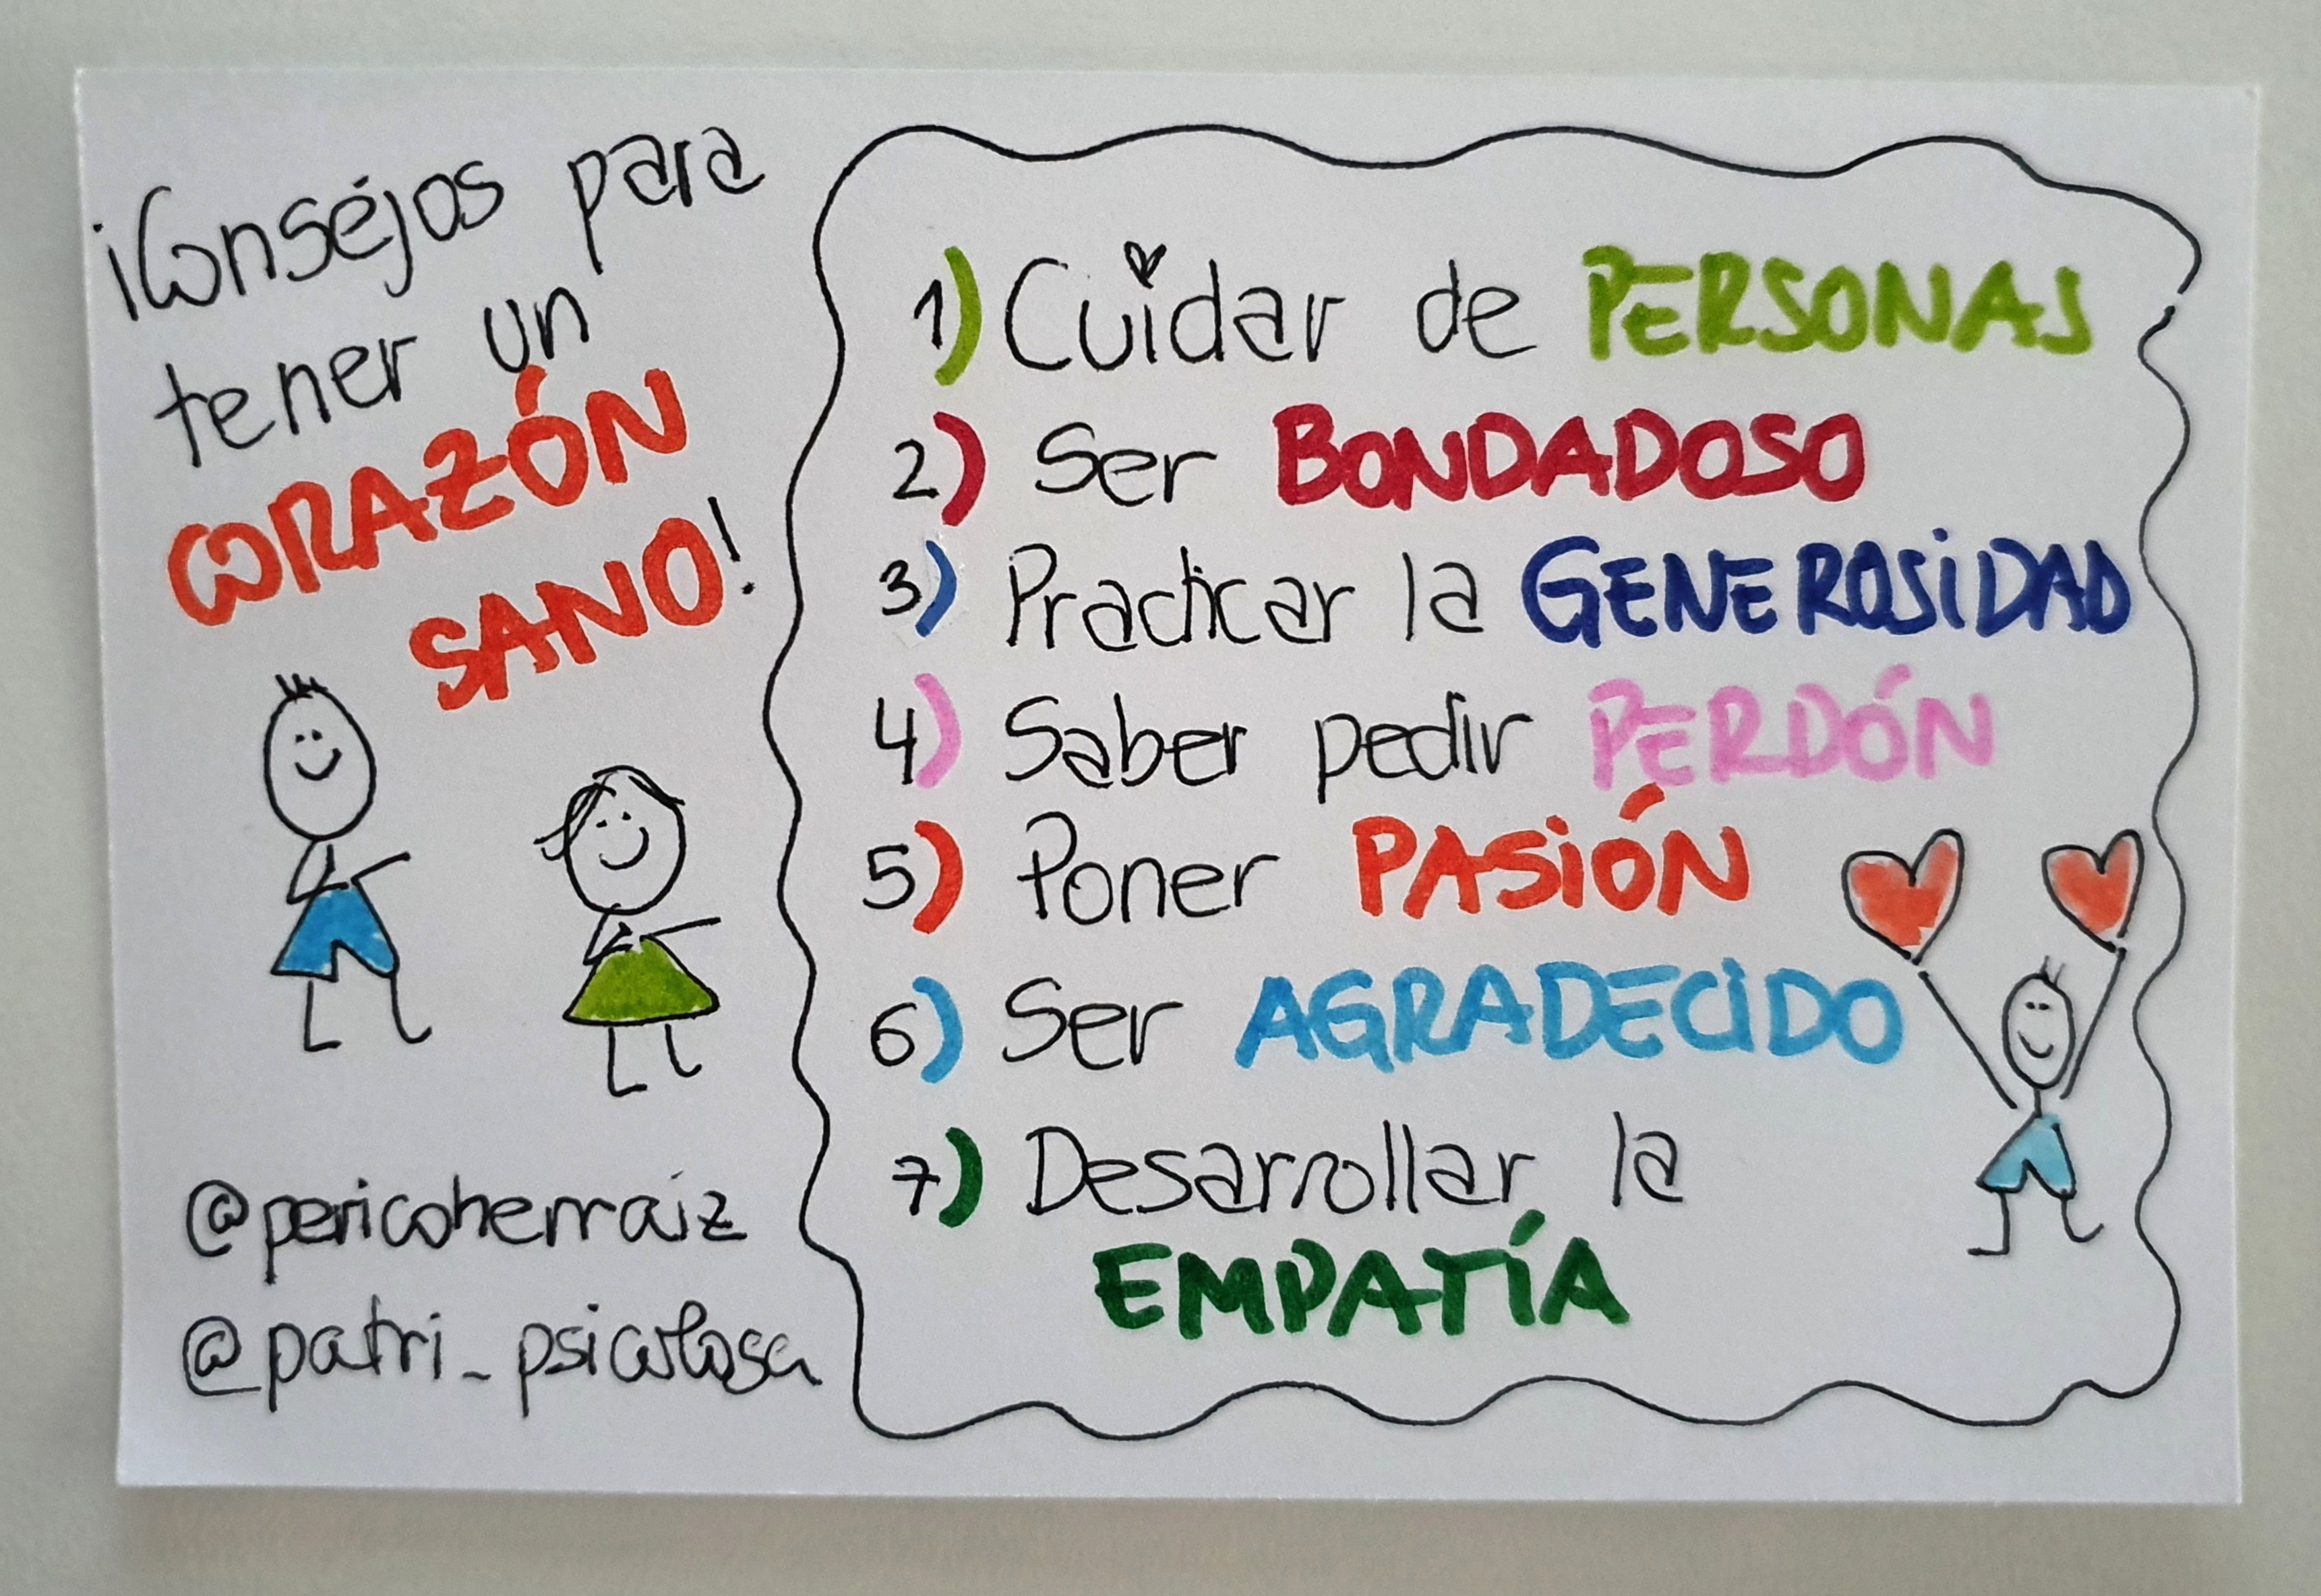 ¡Consejos para
tener un
CORAZÓN
SANO!
@pericoherraiz
@patri_psicologa
1) Cuidar de PERSONAS
2) Ser BONDADOSO
3) Practicar la GENEROSIDAD
4) Saber pedir PERDÓN
5) Poner PASIÓN
6) Ser AGRADECIDO
7) Desarrollar la
EMPATÍA